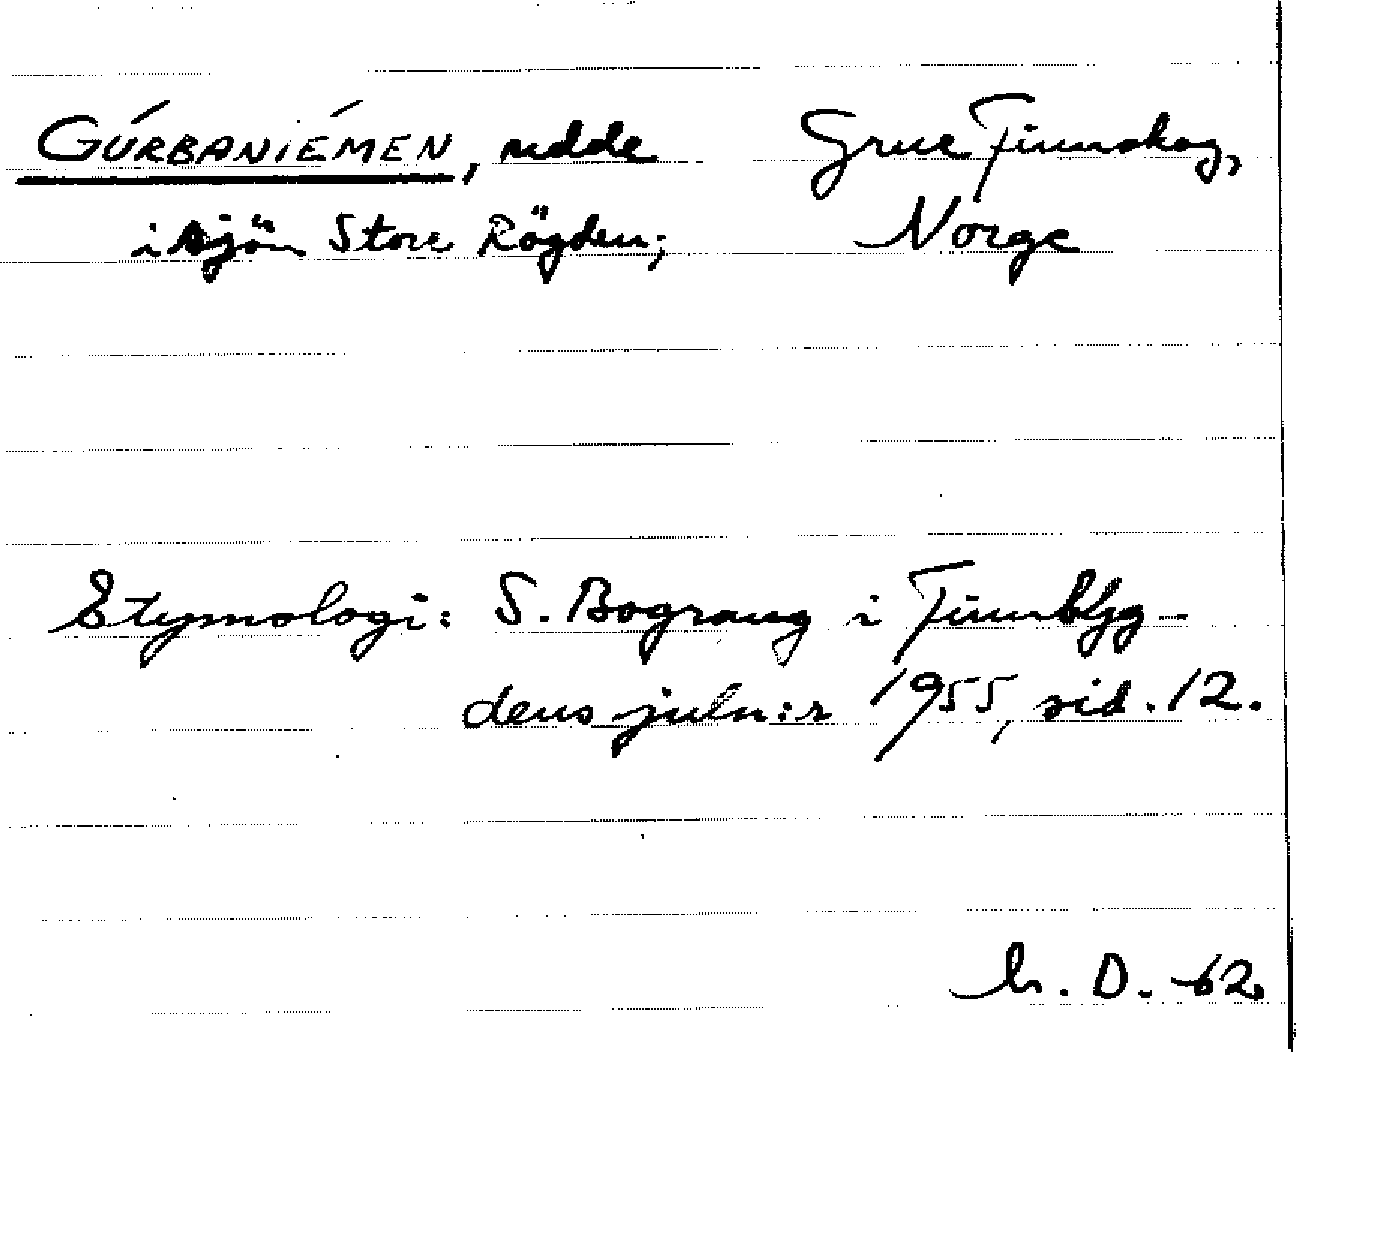 GÚRBANIÉMEN, udde Grue Finnskog,
i sjön Store Rögden; Norge
Etymologi: S. Bograng i Finnbyg-
dens juln:r 1955, sid. 12.
D. -62